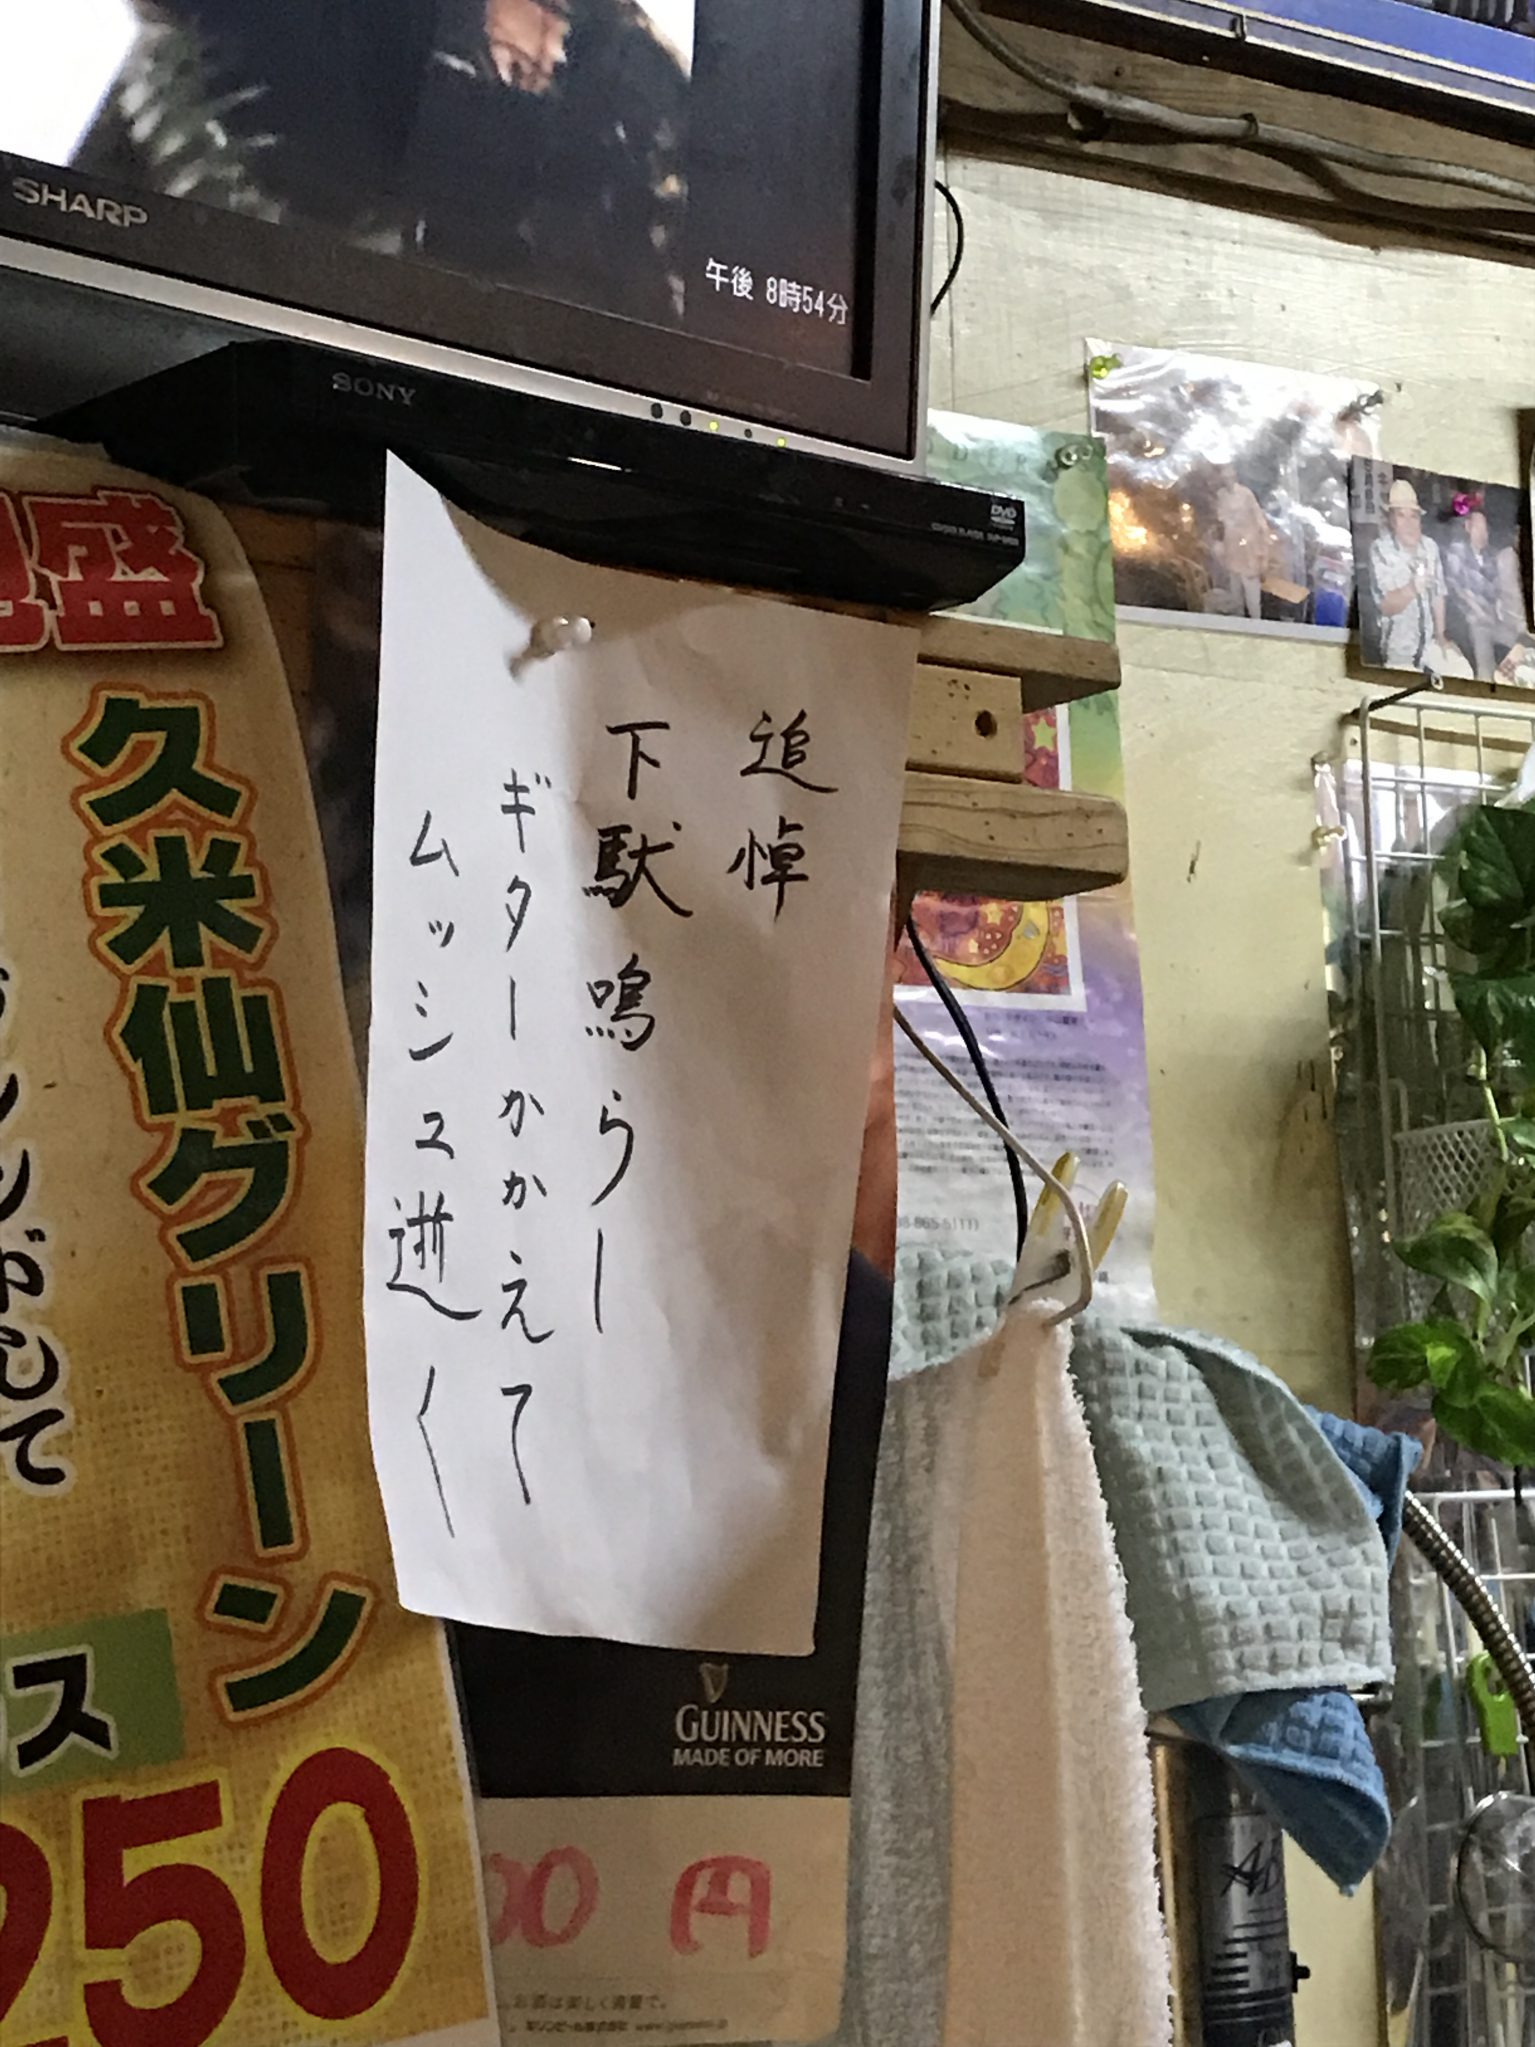 SHARP
午後 8時54分
SONY
DVD
追悼
下駄鳴らし
ギターかかえて
ムッシュ逝く
盛
久米仙グリーン
して
ス
250
GUINNESS
MADE OF MORE
00円